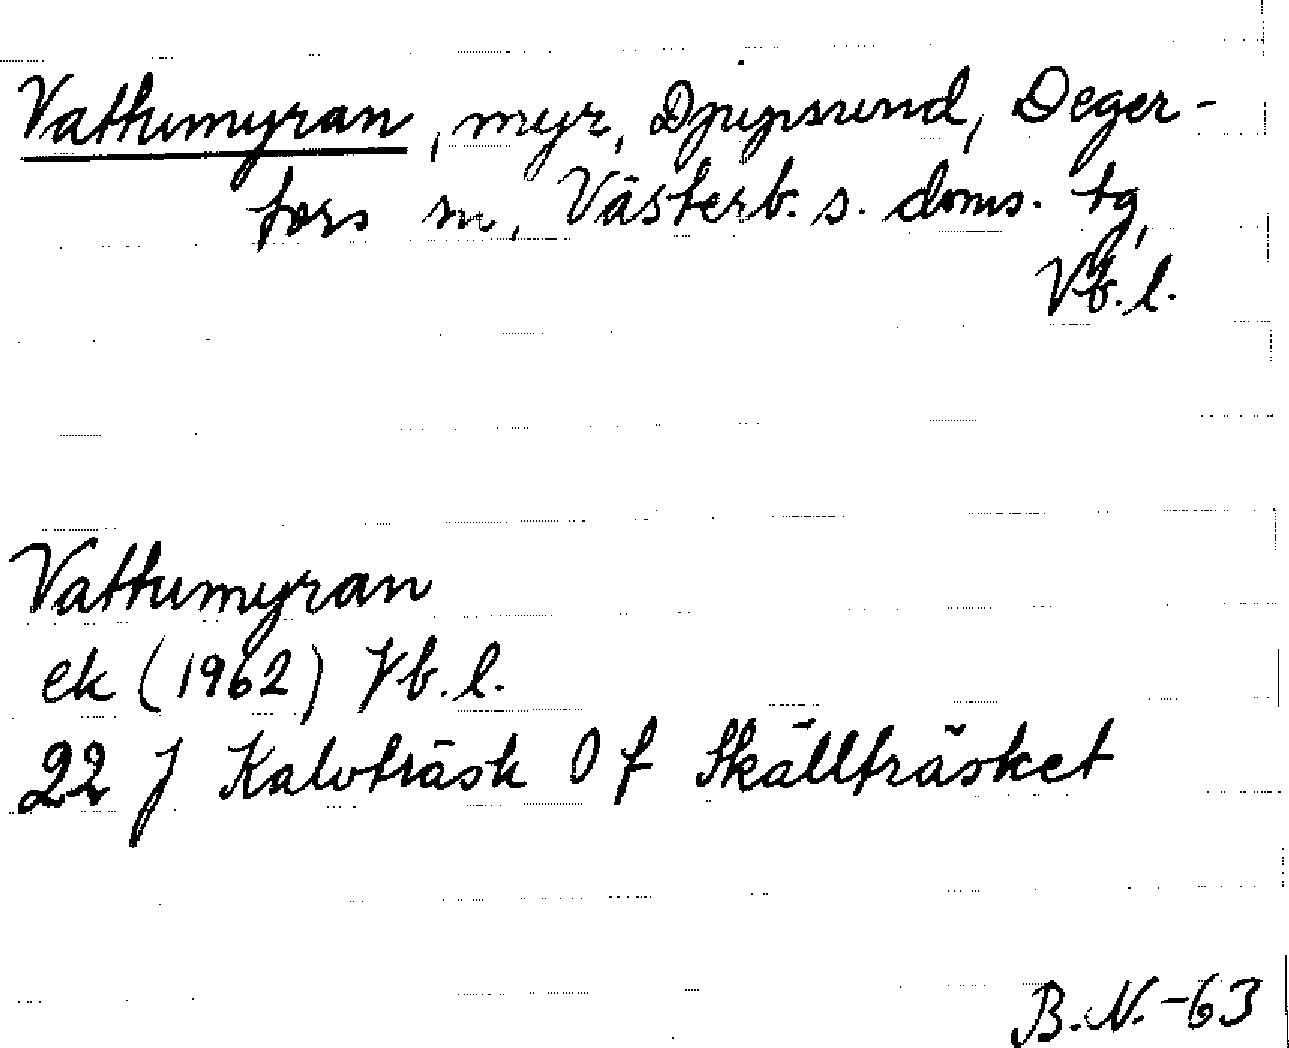 Vathumyran, myr, Djupsund, Deger-
fors sn, Västerb. s. doms. tg,
Vb. l.
Vathumyran
ek (1962) Vb. l.
22 J Kalvträsk O f Skällträsket
B.N.-63